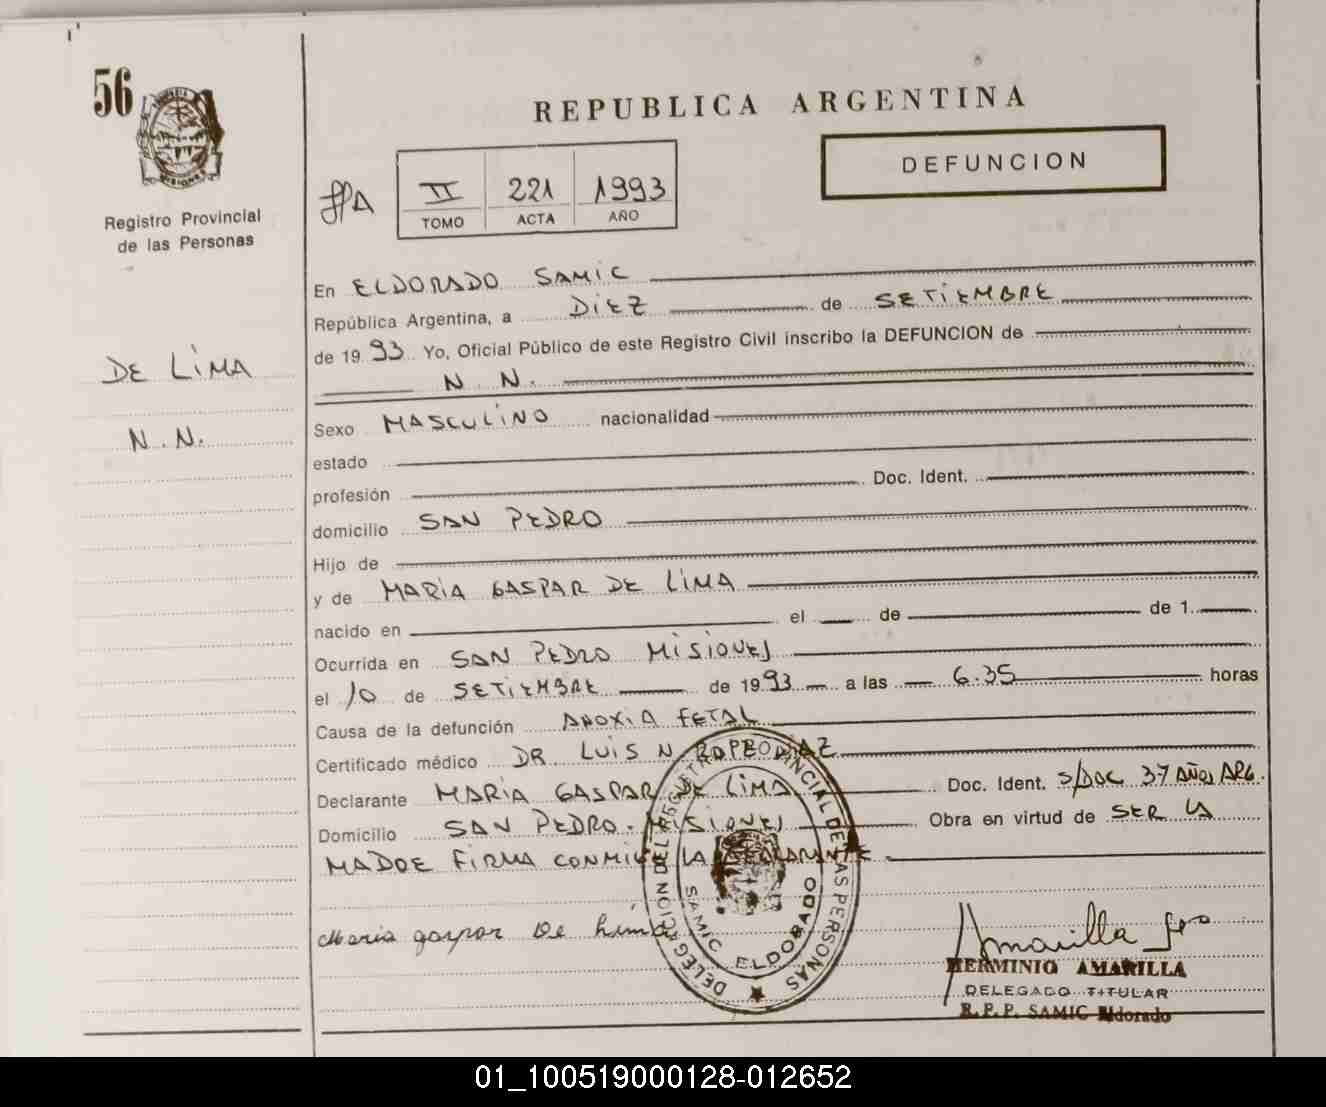 56
MISIONES
Registro Provincial
de las Personas
DE LIMA
N.N.
REPUBLICA ARGENTINA
DEFUNCION
II 221 1993
TOMO ACTA AÑO
En ELDORADO SAMIC
República Argentina, a DIEZ de SETIEMBRE
de 1993 Yo, Oficial Público de este Registro Civil inscribo la DEFUNCION de
N. N.
Sexo MASCULINO nacionalidad
estado
profesión Doc. Ident.
domicilio SAN PEDRO
Hijo de
y de MARIA GASPAR DE LIMA
nacido en el de de 1
Ocurrida en SAN PEDRO MISIONES
el 10 de SETIEMBRE de 1993 a las 6.35 horas
Causa de la defunción ANOXIA FETAL
Certificado médico DR LUIS N
Declarante MARIA GASPAR DE LIMA Doc. Ident. S/DOC 37 AÑOS ARG.
Domicilio SAN PEDRO. MISIONES Obra en virtud de SER LA
MADRE FIRMA CONMIGO LA DECLARANTE
Maria gaspar De Lima
DELEGACION DEL REGISTRO PROVINCIAL DE LAS PERSONAS
SAMIC ELDORADO
Amarilla
HERMINIO AMARILLA
DELEGADO TITULAR
R.P.P. SAMIC Eldorado
01_100519000128-012652